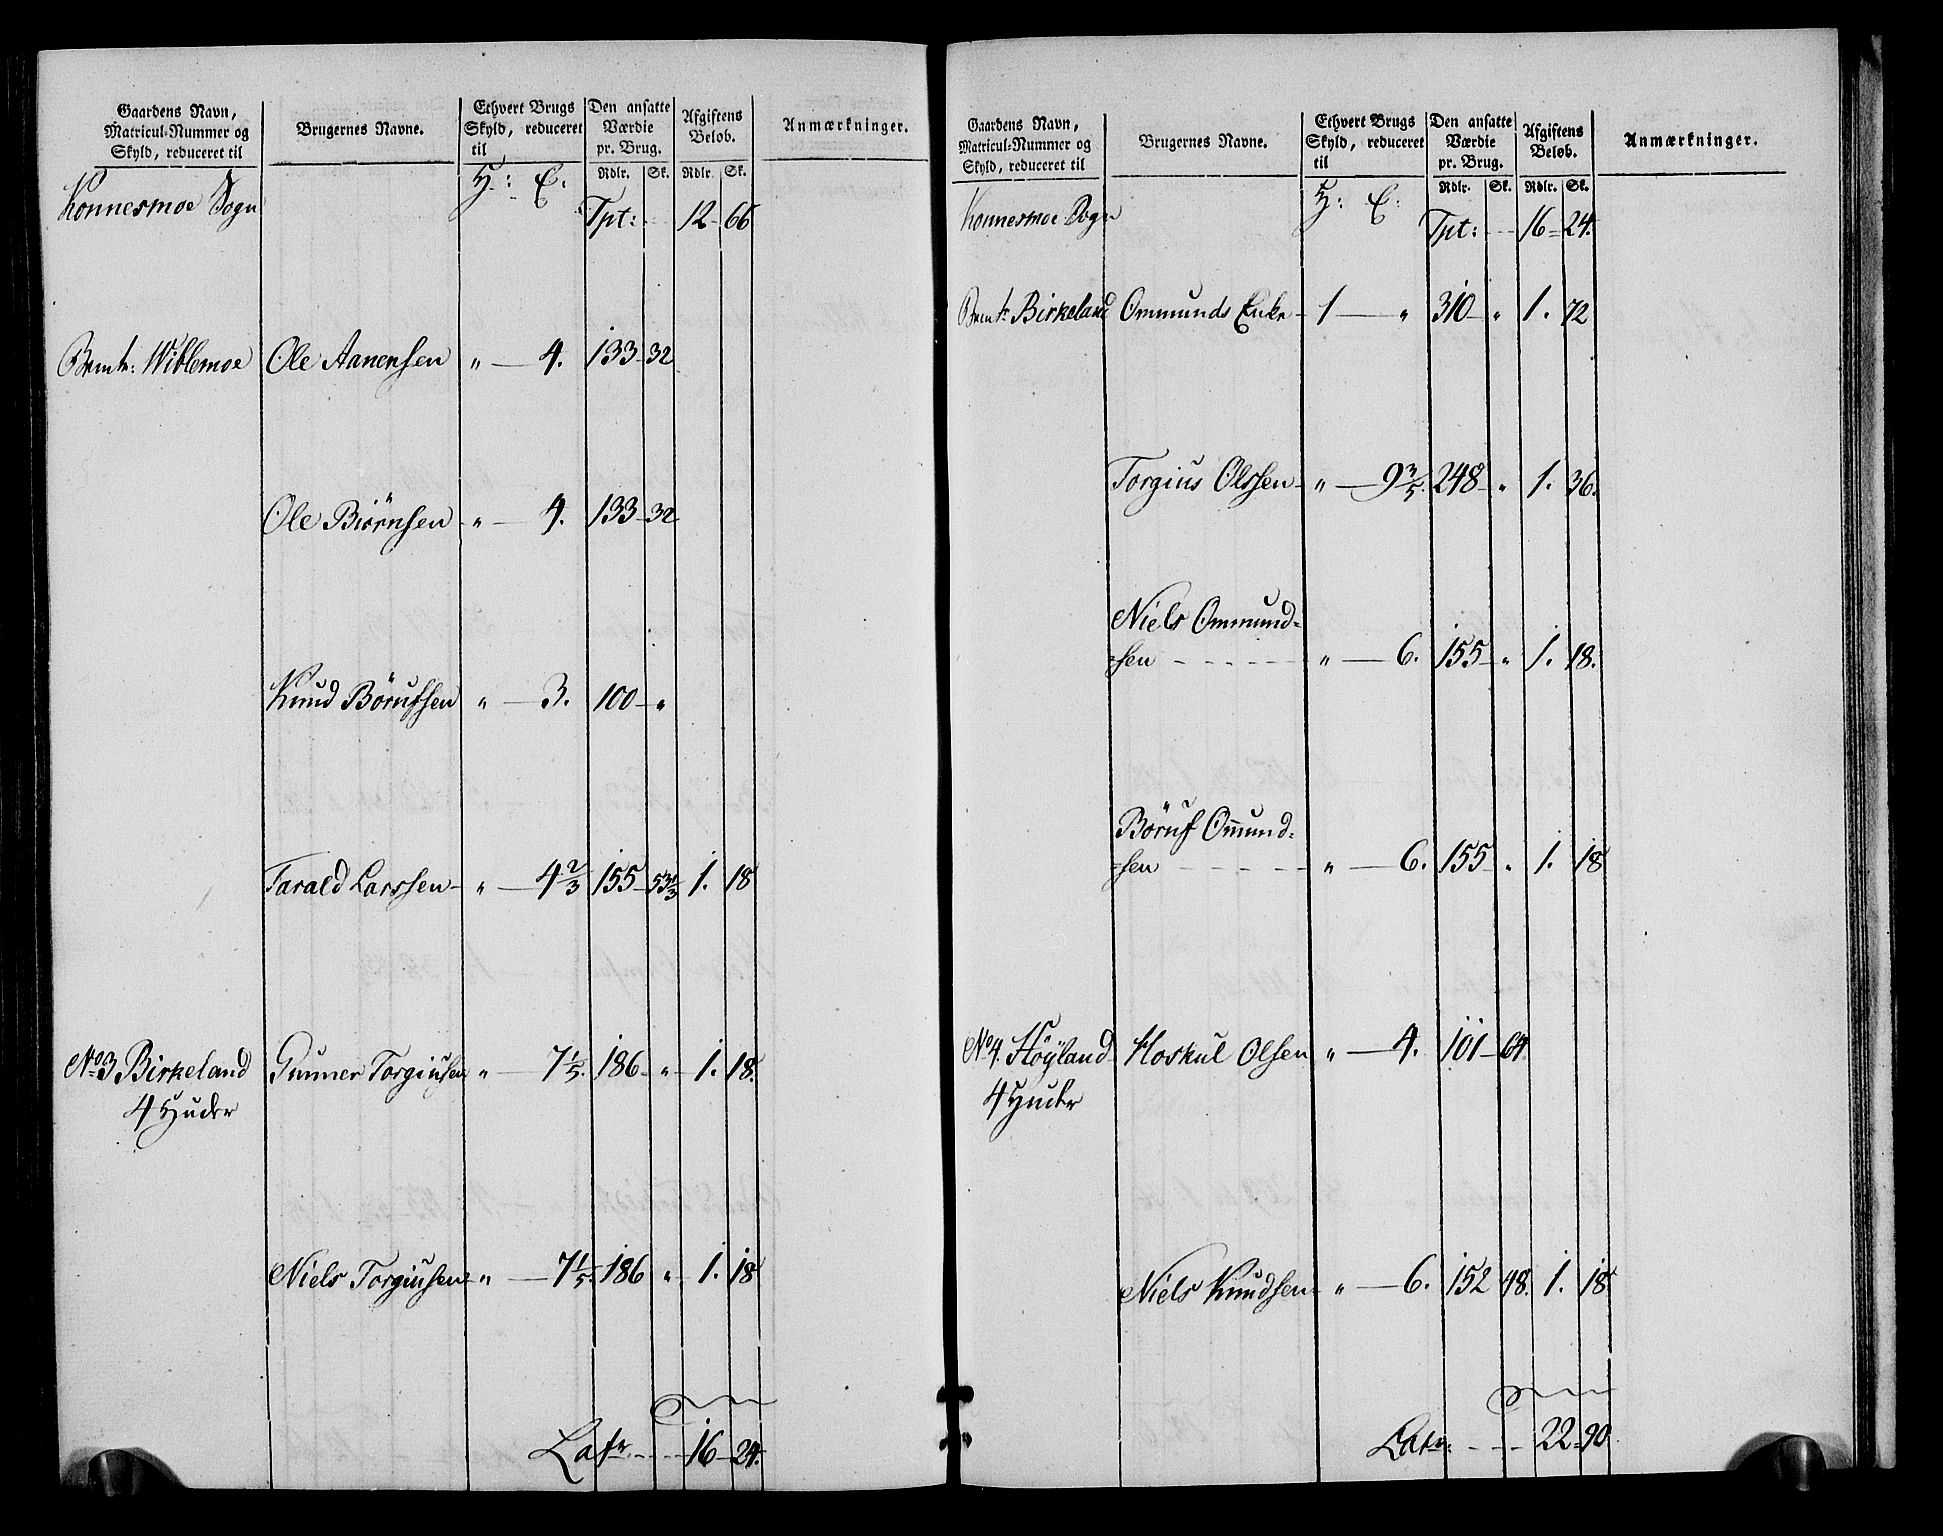 Gaardens Navn,
Matricul-Nummer og
Skyld, reduceret til
Brugernes Navne.
Ethvert Brugs
Skyld, reduceret
til
Den ansatte
Værdie
pr. Brug.
Afgiftens
Beløb.
Anmærkninger.
Rdlr. Sk. Rdlr. Sk.
Konnesmoe Sogn H: E.
Tpt: 12 66
Bemte: Wiblemoe Ole Aanensen " 4. 133 32
Ole Biörnsen " 4. 133 32
Knud Börufsen " 3. 100 "
Tarald Larssen " 4 2/3 155 53 1/3 1. 18
No 3 Birkeland Gunner Torgiusen " 7 1/5. 186 " 1. 18.
4 Huder
Niels Torgiusen " 7 1/5. 186 " 1. 18
Latr. 16 24.
Gaardens Navn,
Matricul-Nummer og
Skyld, reduceret til
Brugernes Navne.
Ethvert Brugs
Skyld, reduceret
til
Den ansatte
Værdie
pr. Brug.
Afgiftens
Beløb.
Anmærkninger.
Rdlr. Sk. Rdlr. Sk.
Konnesmoe Sogn H: E:
Tpt: 16 24.
Bemte Birkeland Ommunds Enke 1 " 310 " 1. 72
Torgius Olssen " 9 3/5. 248 " 1. 36.
Niels Ommund=
=sen " 6. 155 " 1. 18.
Böruf Omund=
=sen " 6. 155 " 1. 18
No 4. Höyland Hoskul Olsen " 4. 101 64.
4 Huder
Niels Knudsen " 6. 152 48. 1. 18
Latr: 22 90